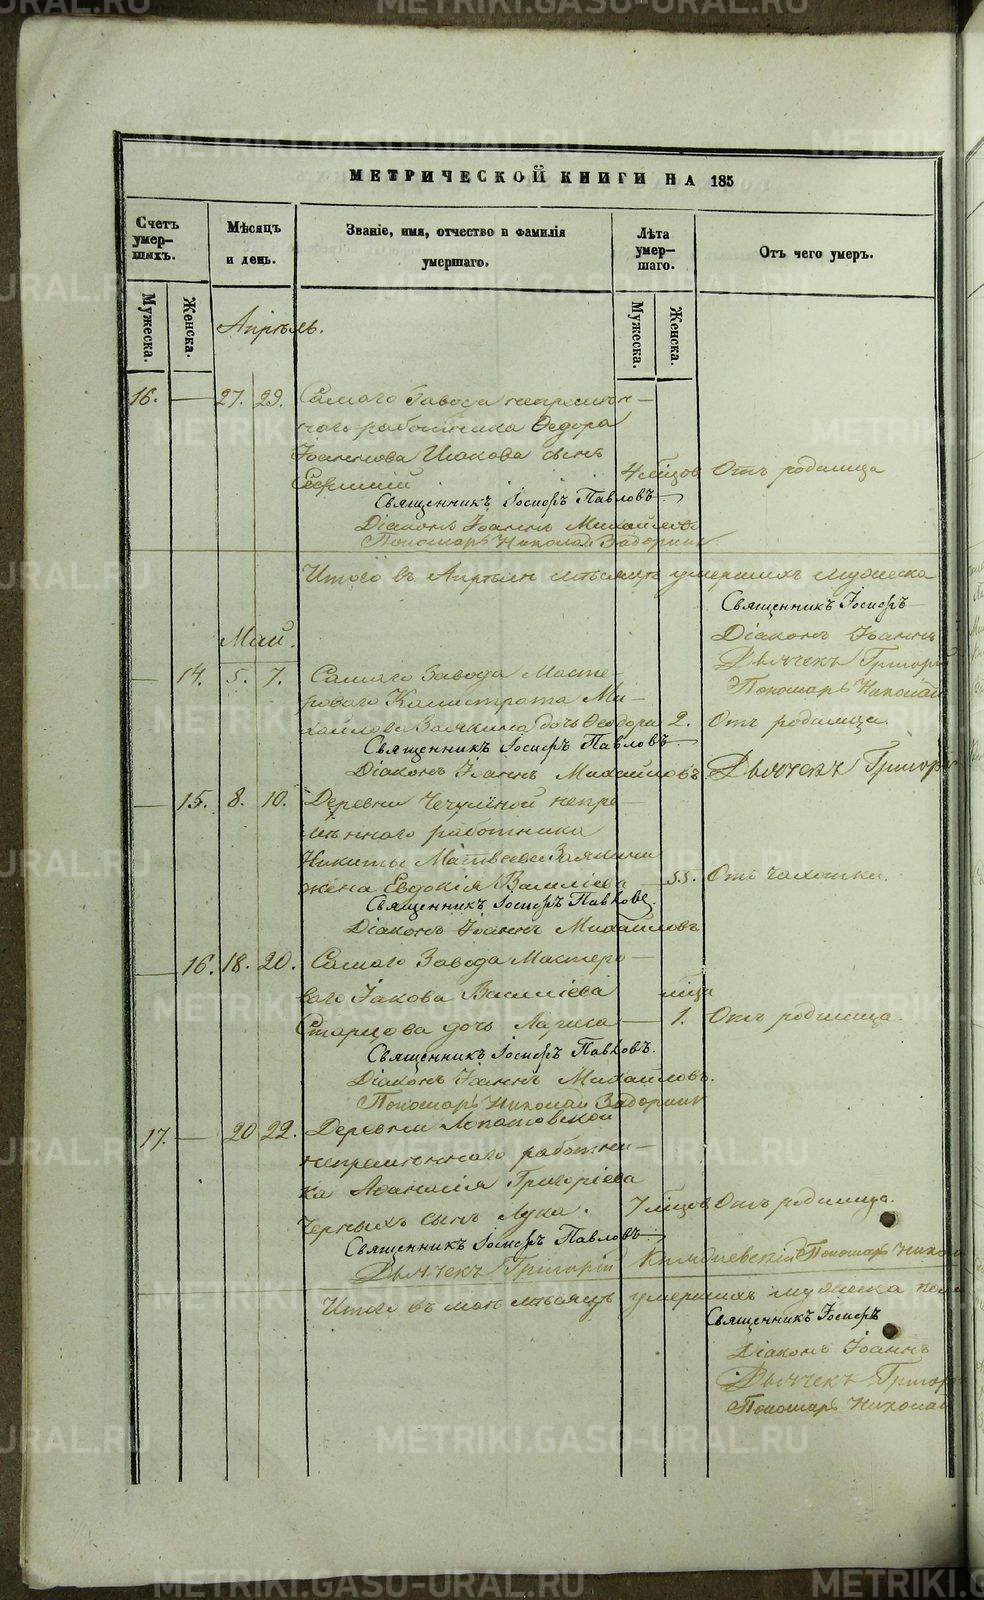 МЕТРИЧЕСКОЙ КНИГИ НА 185
Счетъ умер-шихъ.
Мѣсяцъ и день.
Званіе, имя, отчество и фамилія умершаго.
Лѣта умер-шаго.
Отъ чего умеръ.
Мужеска.
Женска.
Мужеска.
Женска.
Апрѣль.
16. — 27. 29. Самаго Завода непремѣн-
наго работника Ѳедора
Іоаннова сынъ
4 мцов Отъ родимца
Священникъ Іосифъ Павловъ
Діаконъ Іоаннъ Михайловъ
Пономарь Николай
Итого въ Апрѣлѣ мѣсяцѣ умершихъ мужеска
Священникъ Іосифъ
Діаконъ Іоаннъ
Май.
Дьячекъ Григорій
Пономарь Николай
— 14. 5. 7. Самаго Завода Масте
роваго Калистрата Ми-
хайлова Заякина дочь Ѳеодора 2. Отъ родимца.
Священникъ Іосифъ Павловъ
Діаконъ Іоаннъ Михайловъ Дьячекъ Григорій
— 15. 8. 10. Деревни непре-
мѣннаго работника
Никиты Матвѣева Заякина
жена Евдокія Василіева — 55. Отъ чахотки.
Священникъ Іосифъ Павловъ.
Діаконъ Іоаннъ Михайловъ
— 16. 18. 20. Самаго Завода Мастеро-
ваго Іакова Василіева мца
Старцова дочь Лариса — 1. Отъ родимца.
Священникъ Іосифъ Павловъ.
Діаконъ Іоаннъ Михайловъ.
Пономарь Николай
17. — 20 22. Деревни Лопатовской
непремѣннаго работни-
ка Аѳанасія Григоріева
Черныхъ сынъ Лука. 7 мцов Отъ родимца.
Священникъ Іосифъ Павловъ
Дьячекъ Григорій Пономарь Никола
Итого въ маѣ мѣсяцѣ умершихъ мужеска
Священникъ Іосифъ
Діаконъ Іоаннъ
Дьячекъ Григор
Пономарь Николай
METRIKI.GASO-URAL.RU